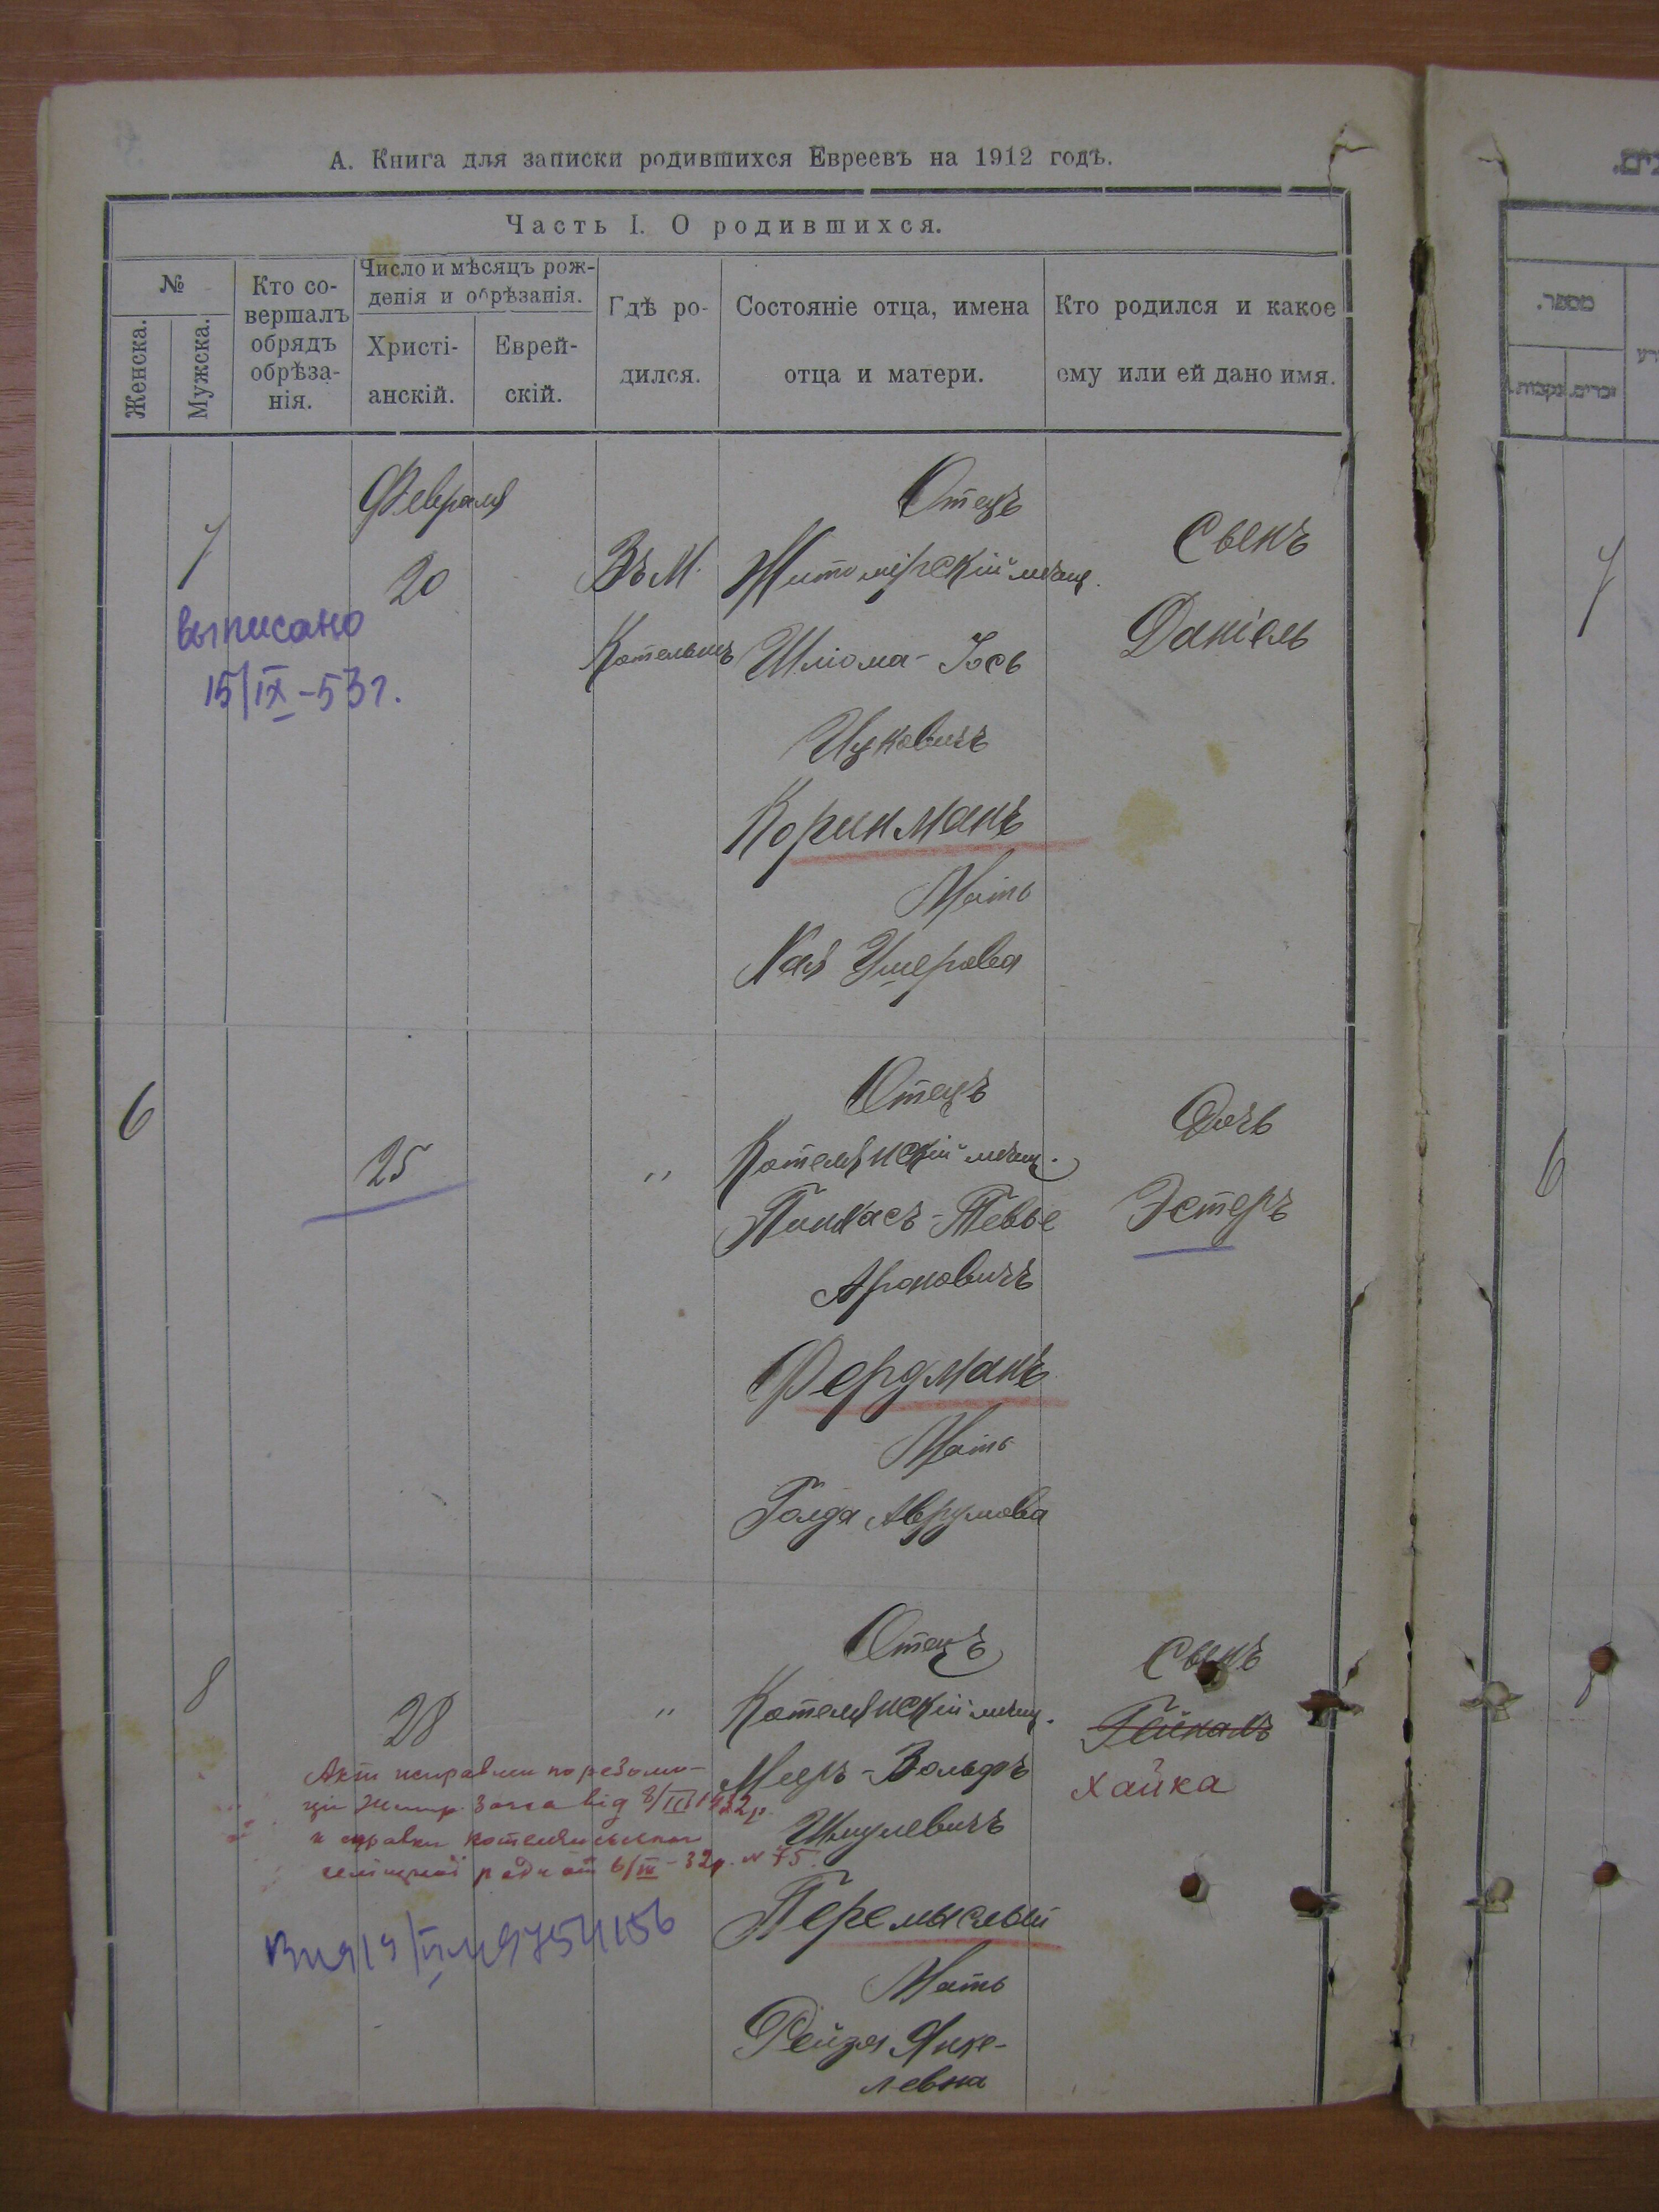 А. Книга для записки родившихся Евреевъ на 1912 годъ.
Часть I. О родившихся.
№
Женска.
Мужска.
Кто со-
вершалъ
обрядъ
обрѣза-
нія.
Число и мѣсяцъ рож-
денія и обрѣзанія.
Христі-
анскій.
Еврей-
скій.
Гдѣ ро-
дился.
Состояніе отца, имена
отца и матери.
Кто родился и какое
ему или ей дано имя.
מספר.
זכרים.
נקבות.
7
Февраля
20
Въ М.
Котельнѣ
Отецъ
Житомірскій мѣщ.
Шліома-Іось
Ицковичъ
Коринманъ
Мать
Хая Ушерова
Сынъ
Даніель
выписано
15/IX-53г.
7
6
25
"
Отецъ
Котелянскій мѣщ.
Пинхасъ-Тевье
Ароновичъ
Фердманъ
Мать
Голда Аврумова
Дочь
Эстеръ
6
8
28
"
Отецъ
Котелянскій мѣщ.
Мееръ-Вольфъ
Шмулевичъ
Перемыслый
Мать
Рейзя Янке-
левна
Сынъ
Хайка
Акт исправлен по резолю-
ції Житир. Загса від 8/III 1932р.
и справки котелянськой
селищной ради от 6/III-32р. N 75.
8